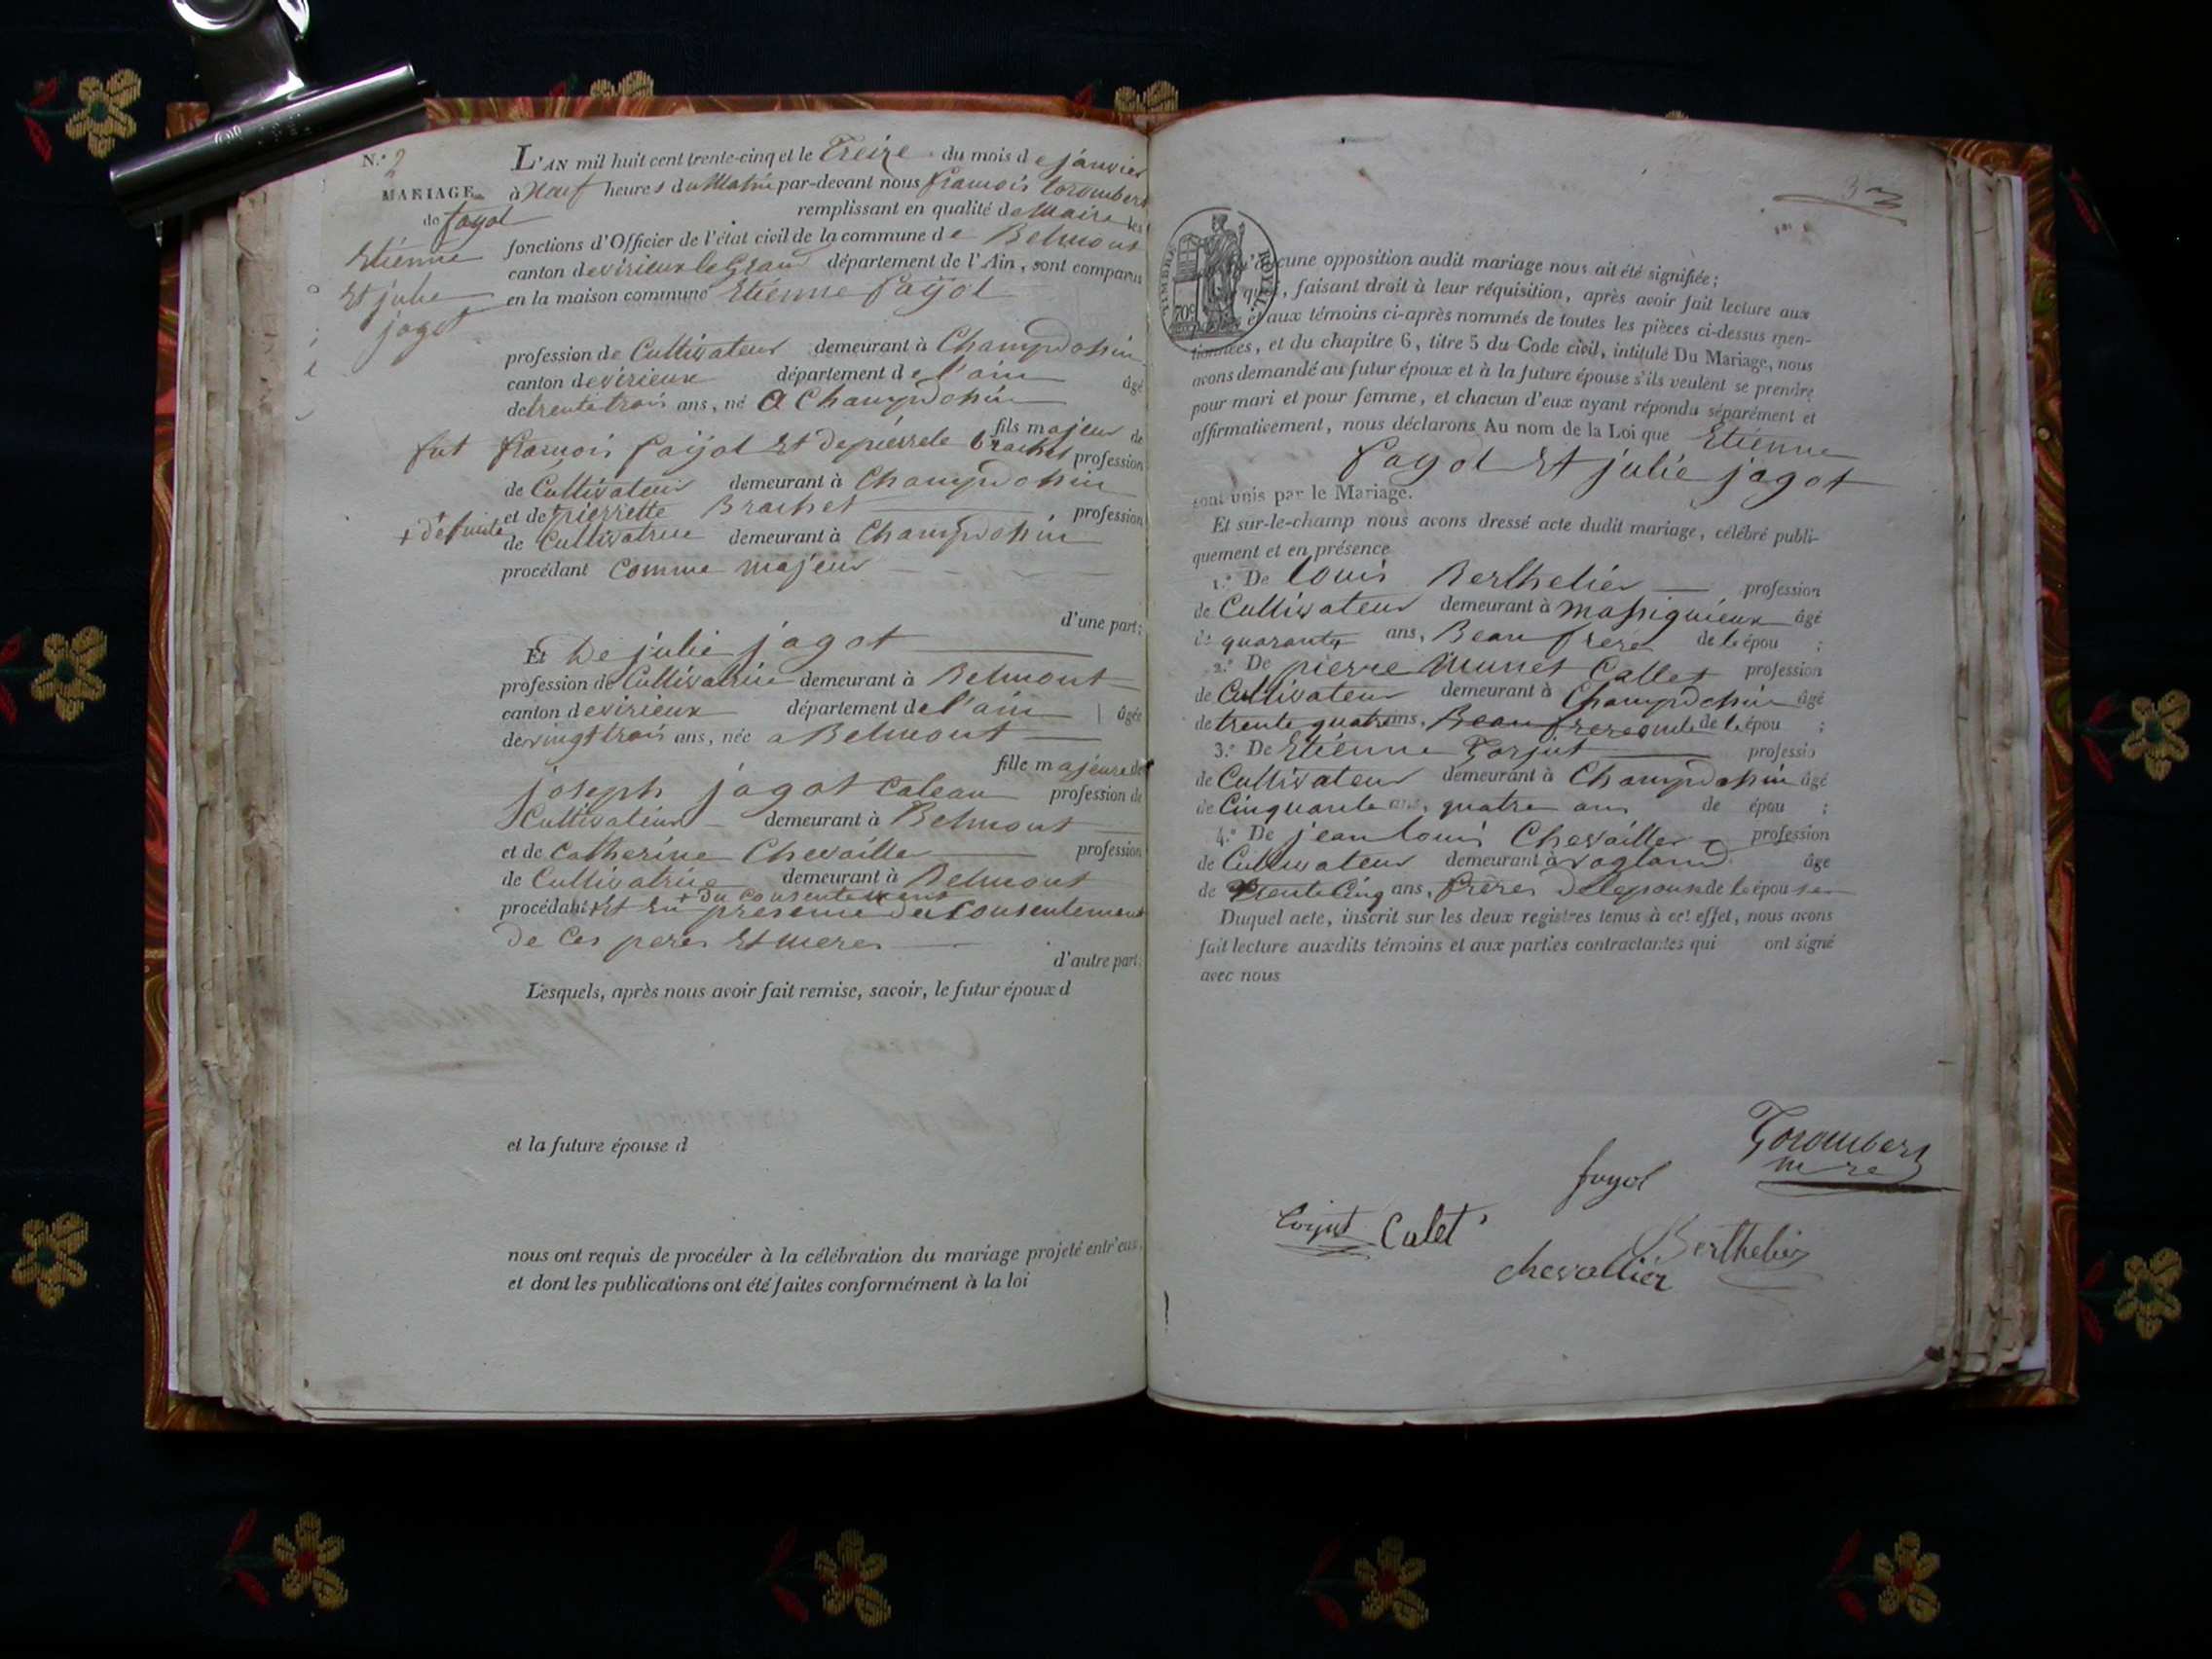 N.° 2
MARIAGE
de fayol
Etiénne
Et julie
jagot
L'AN mil huit cent trente-cinq et le Treize du mois de janvier
à Neuf heures du Matin par-devant nous françois torombert
remplissant en qualité de Maire les
fonctions d'Officier de l'état civil de la commune de Belmont
canton de virieux le Grand département de l'Ain, sont comparus
en la maison commune Etiénne fayol
profession de Cultivateur demeurant à Champdossin
canton de virieux département de l'ain âgé
de trente trois ans, né a Champdossin
fils majeur de
fut françois fayol Et de pierrete brachet profession
de Cultivateur demeurant à Champdossin
et de pierrette Brachet profession
+ défunte
de Cultivatrice demeurant à Champdossin
procédant comme majeur
d'une part;
Et De julie jagot
profession de Cultivatrice demeurant à Belmont
canton de virieux département de l'ain âgée
de vingt trois ans, née a Belmont
fille majeure de
joseph jagot Caleau profession de
Cultivateur demeurant à Belmont
et de Catherine Chevaille profession
de Cultivatrice demeurant à Belmont
+ du consentement
procédant Et En présence du Consentement
de Ces peres Et meres
d'autre part;
Lesquels, après nous avoir fait remise, savoir, le futur époux d
et la future épouse d
nous ont requis de procéder à la célébration du mariage projeté entr'eux,
et dont les publications ont été faites conformément à la loi
3
TIMBRE ROYAL
70c
qu'aucune opposition audit mariage nous ait été signifiée;
que, faisant droit à leur réquisition, après avoir fait lecture aux
et aux témoins ci-après nommés de toutes les pièces ci-dessus men-
tionnées, et du chapitre 6, titre 5 du Code civil, intitulé Du Mariage, nous
avons demandé au futur époux et à la future épouse s'ils veulent se prendre
pour mari et pour femme, et chacun d'eux ayant répondu séparément et
affirmativement, nous déclarons Au nom de la Loi que Etiénne
fayol Et julie jagot
sont unis par le Mariage.
Et sur-le-champ nous avons dressé acte dudit mariage, célébré publi-
quement et en présence
1.° De louis Berthelier profession
de Cultivateur demeurant à massignieux âgé
de quarante ans, Beau frere de l'épou ;
2.° De pierre Munet Callet profession
de Cultivateur demeurant à Champdossin âgé
de trente quatre ans, Beau frere de l'épou ;
3.° De Etiénne Torjut profession
de Cultivateur demeurant à Champdossin âgé
de Cinquante ans, quatre ans de épou ;
4.° De jean louis Chevaillier profession
de Cultivateur demeurant à vogland âgé
de trente Cinq ans, frère de lepouse de l'épou se
Duquel acte, inscrit sur les deux registres tenus à cet effet, nous avons
fait lecture auxdits témoins et aux parties contractantes qui ont signé
avec nous
Torombert
mre
fayol
Torjut
Calet
Berthelier
chevallier